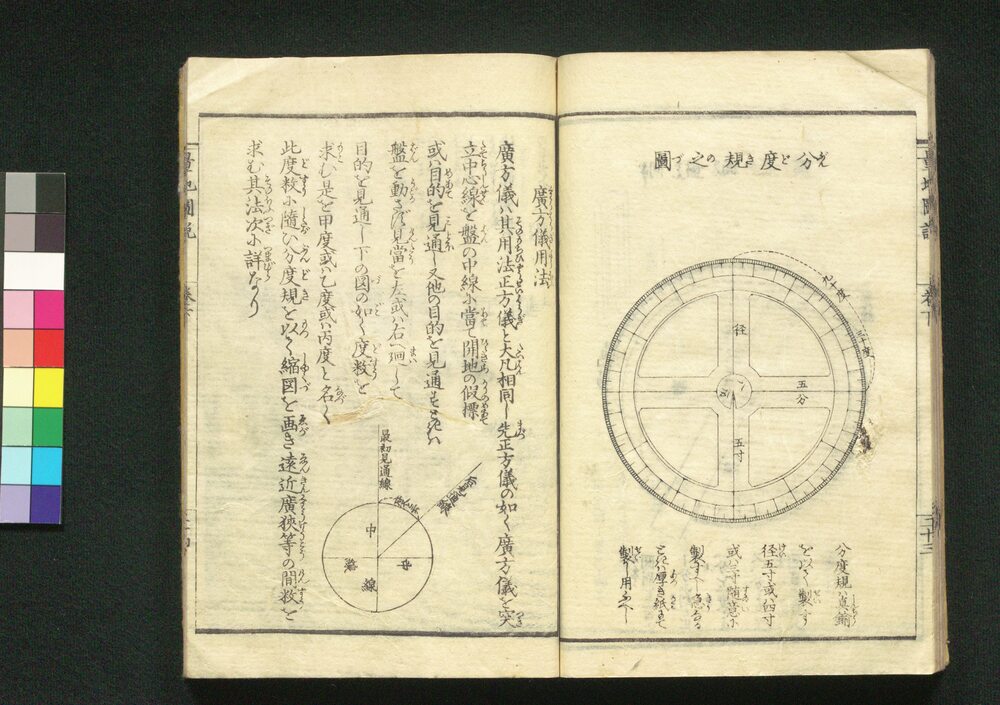 分度規之圖
九十度
三十度
径
五分
五寸
分度規ハ真鍮
を以て製す
径五寸或ハ四寸
或ハ三寸随意に
製すべし急なる
ときハ厚き紙にて
製し用ふべし
量地圖説
巻下
二十三
廣方儀用法
廣方儀ハ其用法正方儀と大凡相同し先正方儀の如く廣方儀を突
立中心線を盤の中線に當て開地の假標
或ハ目的を見通し又他の目的を見通すときハ
盤を動さず見當を左或ハ右へ廻して
目的を見通し下の図の如く度数を
求む是を甲度或ハ乙度或ハ丙度と名く
此度数に随ひ分度規を以て縮図を画き遠近廣狭等の間数を
求む其法次に詳なり
最初見通線
中
線
量地圖説